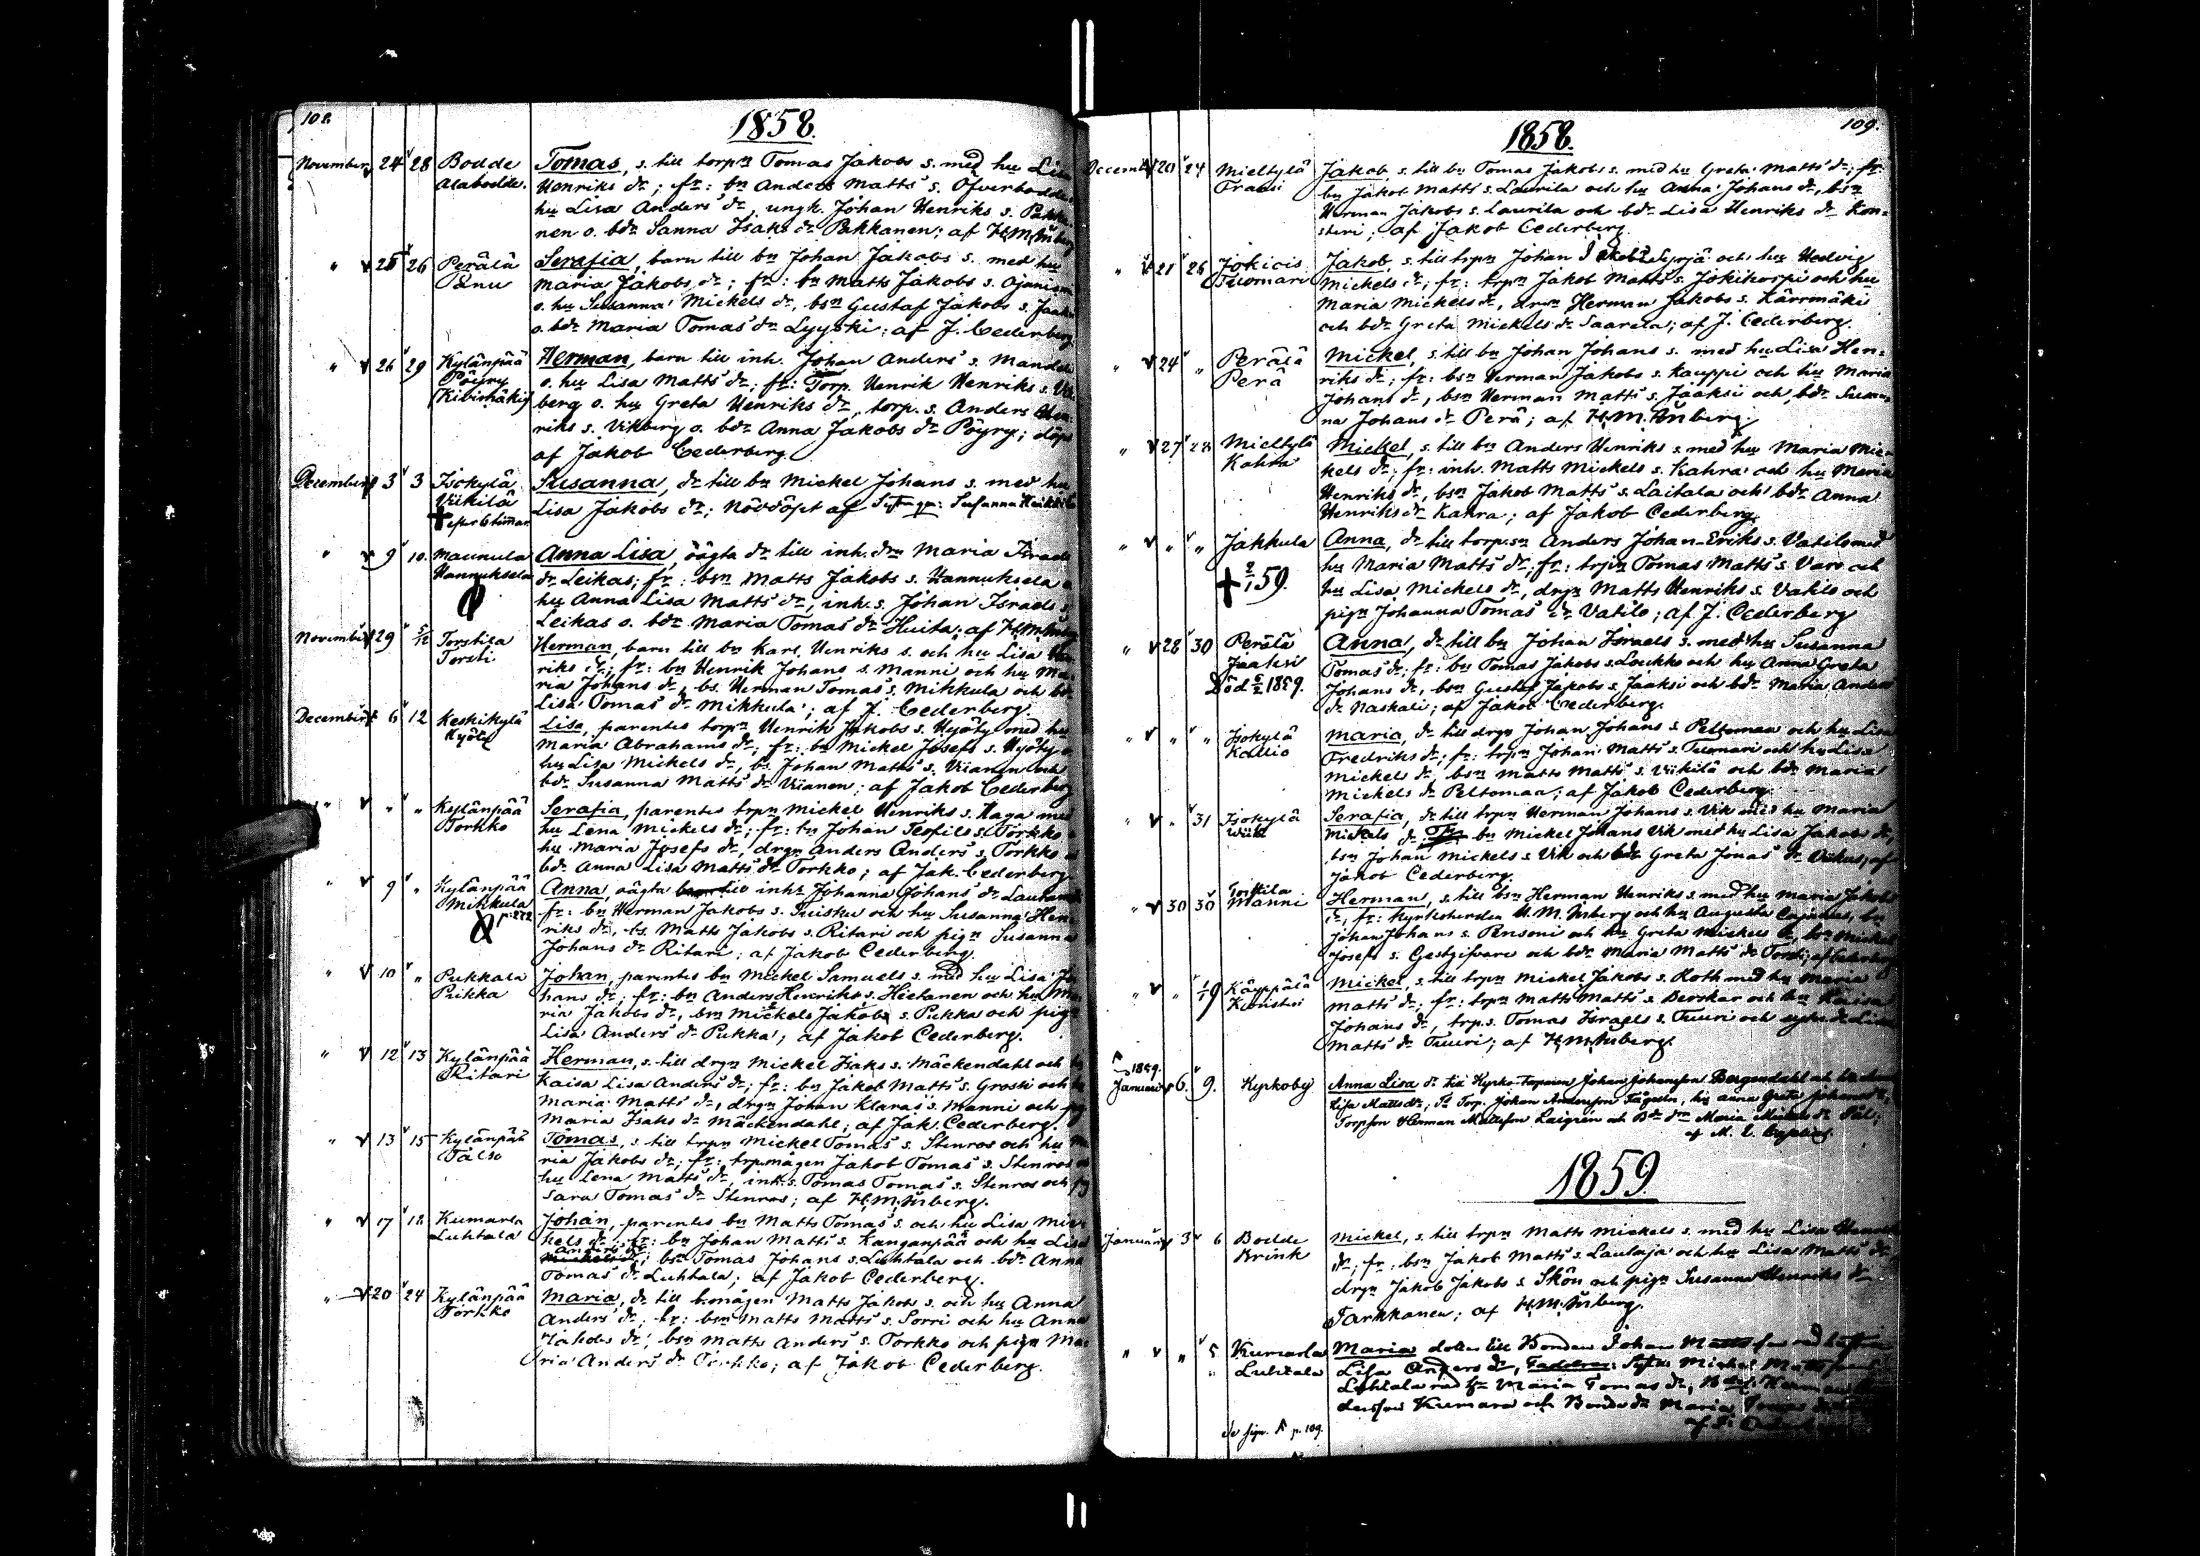 108.
1858.
November 24 28 Bodde Tomas, s. till torpn Tomas Jakobs s. med hu Lisa
Alabodde. Henriks dr; fr: bn Anders Matts s. Öfverbodde
hu Lisa Anders dr, ungk. Johan Henriks s. Pakka-
nen o. bdr Sanna Isaks dr Pakkanen; af H.M.
" 25 26 Perälä Serafia, barn till bn Johan Jakobs s. med hu
Panu Maria Jakobs dr; fr: bn Matts Jakobs s. Ojaniemi
o. hu Susanna Mickels dr, bsn Gustaf Jakobs s. Jaaksi
o. bdr Maria Tomas dr Lyyski; af J. Cederberg
" 26 29 Kylänpää Herman, barn till inh. Johan Anders s. Mandel
Pöyry o. hu Lisa Matts dr; fr: Torp. Henrik Henriks s. Vik-
(Kivimäki) berg o. hu Greta Henriks dr, torp. s. Anders Hen-
riks s. Vikberg o. bdr Anna Jakobs dr Pöyry; döpt
af Jakob Cederberg
December 3 3 Isokylä Susanna, dr till bn Mickel Johans s. med hu
Viikilä Lisa Jakobs dr; Nöddöpt af Susanna
" 9 10. Maunula Anna Lisa, oägta dr till inh. drn Maria Israels
Hannuksela dr Leikas; fr: bsn Matts Jakobs s. Hannuksela o
hu Anna Lisa Matts dr, inh. s. Johan Israels s.
Leikas o. bdr Maria Tomas dr Huita; af H.M.
November 29 5/12 Torstila Herman, barn till bn Karl Henriks s. och hu Lisa Hen-
Torsti riks dr; fr: bn Henrik Johans s. Manni och hu Ma-
ria Johans dr, bs. Herman Tomas s. Mikkula och bdr
Lisa Tomas dr Mikkula; af J. Cederberg.
December 6 12 Keskikylä Lisa, parentes torpn Henrik Jakobs s. Hyöty med hu
Hyöty Maria Abrahams dr; fr: bn Mickel Josefs s. Hyöty o
hu Lisa Mickels dr, bs. Johan Matts s. Viianen och
bdr Susanna Matts dr Viianen; af Jakob Cederberg
" " " Kylänpää Serafia, parentes trpn Mickel Henriks s. Haga med
Torkko hu Lena Mickels dr; fr: bn Johan Teofils s. Torkko o
hu Maria Josefs dr, drgn Anders Anders s. Torkko o
bdr Anna Lisa Matts dr Torkko; af Jak. Cederberg
" 9 " Kylänpää Anna, oägta till inh. Johanna Johans dr
Mikkula fr: bn Herman Jakobs s. och hu Susanna Hen-
riks dr, bs. Matts Jakobs s. Ritari och pign Susanna
Johans dr Ritari; af Jakob Cederberg.
" 10 " Pukkala Johan, parentes bn Mickel Samuels s. med hu Lisa Jo-
Pukka hans dr; fr: bn Anders Henriks s. Hietanen och hu Ma-
ria Jakobs dr, bsn Mickel Jakobs s. Pukka och pign
Lisa Anders dr Pukka; af Jakob Cederberg.
" 12 13 Kylänpää Herman, s. till drgn Mickel Isaks s. Mäckendahl och hu
Ritari Kaisa Lisa Anders dr; fr: bn Jakob Matts s. Grosti och hu
Maria Matts dr, drgn Johan Klaras s. Manni och pg
Maria Isaks dr Mäckendahl; af Jak. Cederberg.
" 13 15 Kylänpää Tomas, s. till trpn Mickel Tomas s. Stenros och hu Ma-
Talso ria Jakobs dr; fr: trpmågen Jakob Tomas s. Stenros o
hu Lena Matts dr, inh. s. Tomas Tomas s. Stenros och pg
Sara Tomas dr Stenros; af H.M.
" 17 18 Kumara Johan, parentes bn Matts Tomas s. och hu Lisa Mic-
Luhtala kels dr; fr: bn Johan Matts s. Kanganpää och hu Lisa
Anders dr; bsn Tomas Johans s. Luhtala och bdr Anna
Tomas dr Luhtala; af Jakob Cederberg.
" 20 24 Kylänpää Maria, dr till b.mågen Matts Jakobs s. och hu Anna
Torkko Anders dr; fr: bsn Matts Matts s. Sorri och hu Anna
Jakobs dr, bsn Matts Anders s. Torkko och pign Ma-
ria Anders dr Torkko; af Jakob Cederberg.
109.
1858.
December 20 24 Mieltylä Jakob, s. till bn Tomas Jakobs s. med hu Greta Matts dr; fr:
Fransi bn Jakob Matts s. Laurila och hu Anna Johans dr, bsn
Herman Jakobs s. Laurila och bdr Lisa Henriks dr Kon-
steri; af Jakob Cederberg.
" 21 26 Jokicis Jakob, s. till trpn Johan Jakobs s. Seppä och hu Hedvig
Tuomari Mickels dr; fr: trpn Jakob Matts s. Jokikorpi och hu
Maria Mickels dr, drgn Herman Jakobs s. Kärrmäki
och bdr Greta Mickels dr Saarela; af J. Cederberg.
" 24 " Perälä Mickel, s. till bn Johan Johans s. med hu Lisa Hen-
Perä riks dr; fr: bsn Herman Jakobs s. Kauppi och hu Maria
Johans dr, bsn Herman Matts s. Jaaksi och bdr Susan-
na Johans dr Perä; af H.M.
" 27 28 Mieltylä Mickel, s. till bn Anders Henriks s. med hu Maria Mic-
Kahra kels dr; fr: inh. Matts Mickels s. Kahra och hu Maria
Henriks dr, bsn Jakob Matts s. Laitala och bdr Anna
Henriks dr Kahra; af Jakob Cederberg.
" " " Jakkula Anna, dr till torp.sn Anders Johan-Eriks s. Vatilo med
2/1 59. hu Maria Matts dr; fr: trpn Tomas Matts s. Varo och
hu Lisa Mickels dr, drgn Matts Henriks s. Vatilo och
pign Johanna Tomas dr Vatilo; af J. Cederberg
" 28 30 Perälä Anna, dr till bn Johan Israels s. med hu Susanna
Jaaksi Tomas dr; fr: bn Tomas Jakobs s. Loukko och hu Anna Greta
Död 1859. Johans dr, bsn Gustaf Jakobs s. Jaaksi och bdr Maria Anders
dr Naskali; af Jakob Cederberg.
" " " Isokylä Maria, dr till drgn Johan Johans s. Peltomaa och hu Lisa
Kallio Fredriks dr; fr: trpn Johan Matts s. Tuomari och hu Lisa
Mickels dr, bsn Matts Matts s. Viikilä och bdr Maria
Mickels dr Peltomaa; af Jakob Cederberg.
" " 31 Isokylä Serafia, dr till trpn Herman Johans s. Vik med hu Maria
Mickels dr bn Mickel Johans Vik med hu Lisa Jakobs dr,
bsn Johan Mickels s. Vik och bdr Greta Jonas dr af
Jakob Cederberg.
" 30 30 Torstila Herman, s. till bsn Herman Henriks s. med hu Maria Jakobs
Manni dr, fr: Kyrkoherden H. M. och hu Augusta bn
Johan Johans s. Pensoni och hu Greta Mickels dr, bsn Mickel
Josefs s. Gestgifvare och bdr Maria Matts dr Torsti; af
" " 1/1 59 Käyppälä Mickel, s. till trpn Mickel Jakobs s. Roth med hu Maria
Konsteri Matts dr; fr: trpn Matts Matts s. och hu Kaisa
Johans dr, trp.s. Tomas Israels s. Tuuri och Lisa
Matts dr Tuuri; af H.M.
1859.
Januari 6. 9. Kyrkoby Anna Lisa dr till Johan Johansson Bergendahl och
Lisa Mattsdr, Torp. Johan Andersson hu Anna Greta Johansdr,
Torpson Herman Mattsson och Maria
af
1859.
Januari 3 6 Bodde Mickel, s. till trpn Matts Mickels s. med hu Lisa Henriks
Brink dr; fr: bsn Jakob Matts s. Laulaja och hu Lisa Matts dr
drgn Jakob Jakobs s. Skön och pign Susanna Henriks dr
Tarkkanen; af H.M.
" " 5 Kumara Maria dotter till Bonden Johan Mattsson med hustru
" Luhtala Lisa Anders dr, Mickel Mattsson
Luhtala med hu Maria Tomas dr, Herman
dersson Kumara och Maria Tomas
af
p. 109.